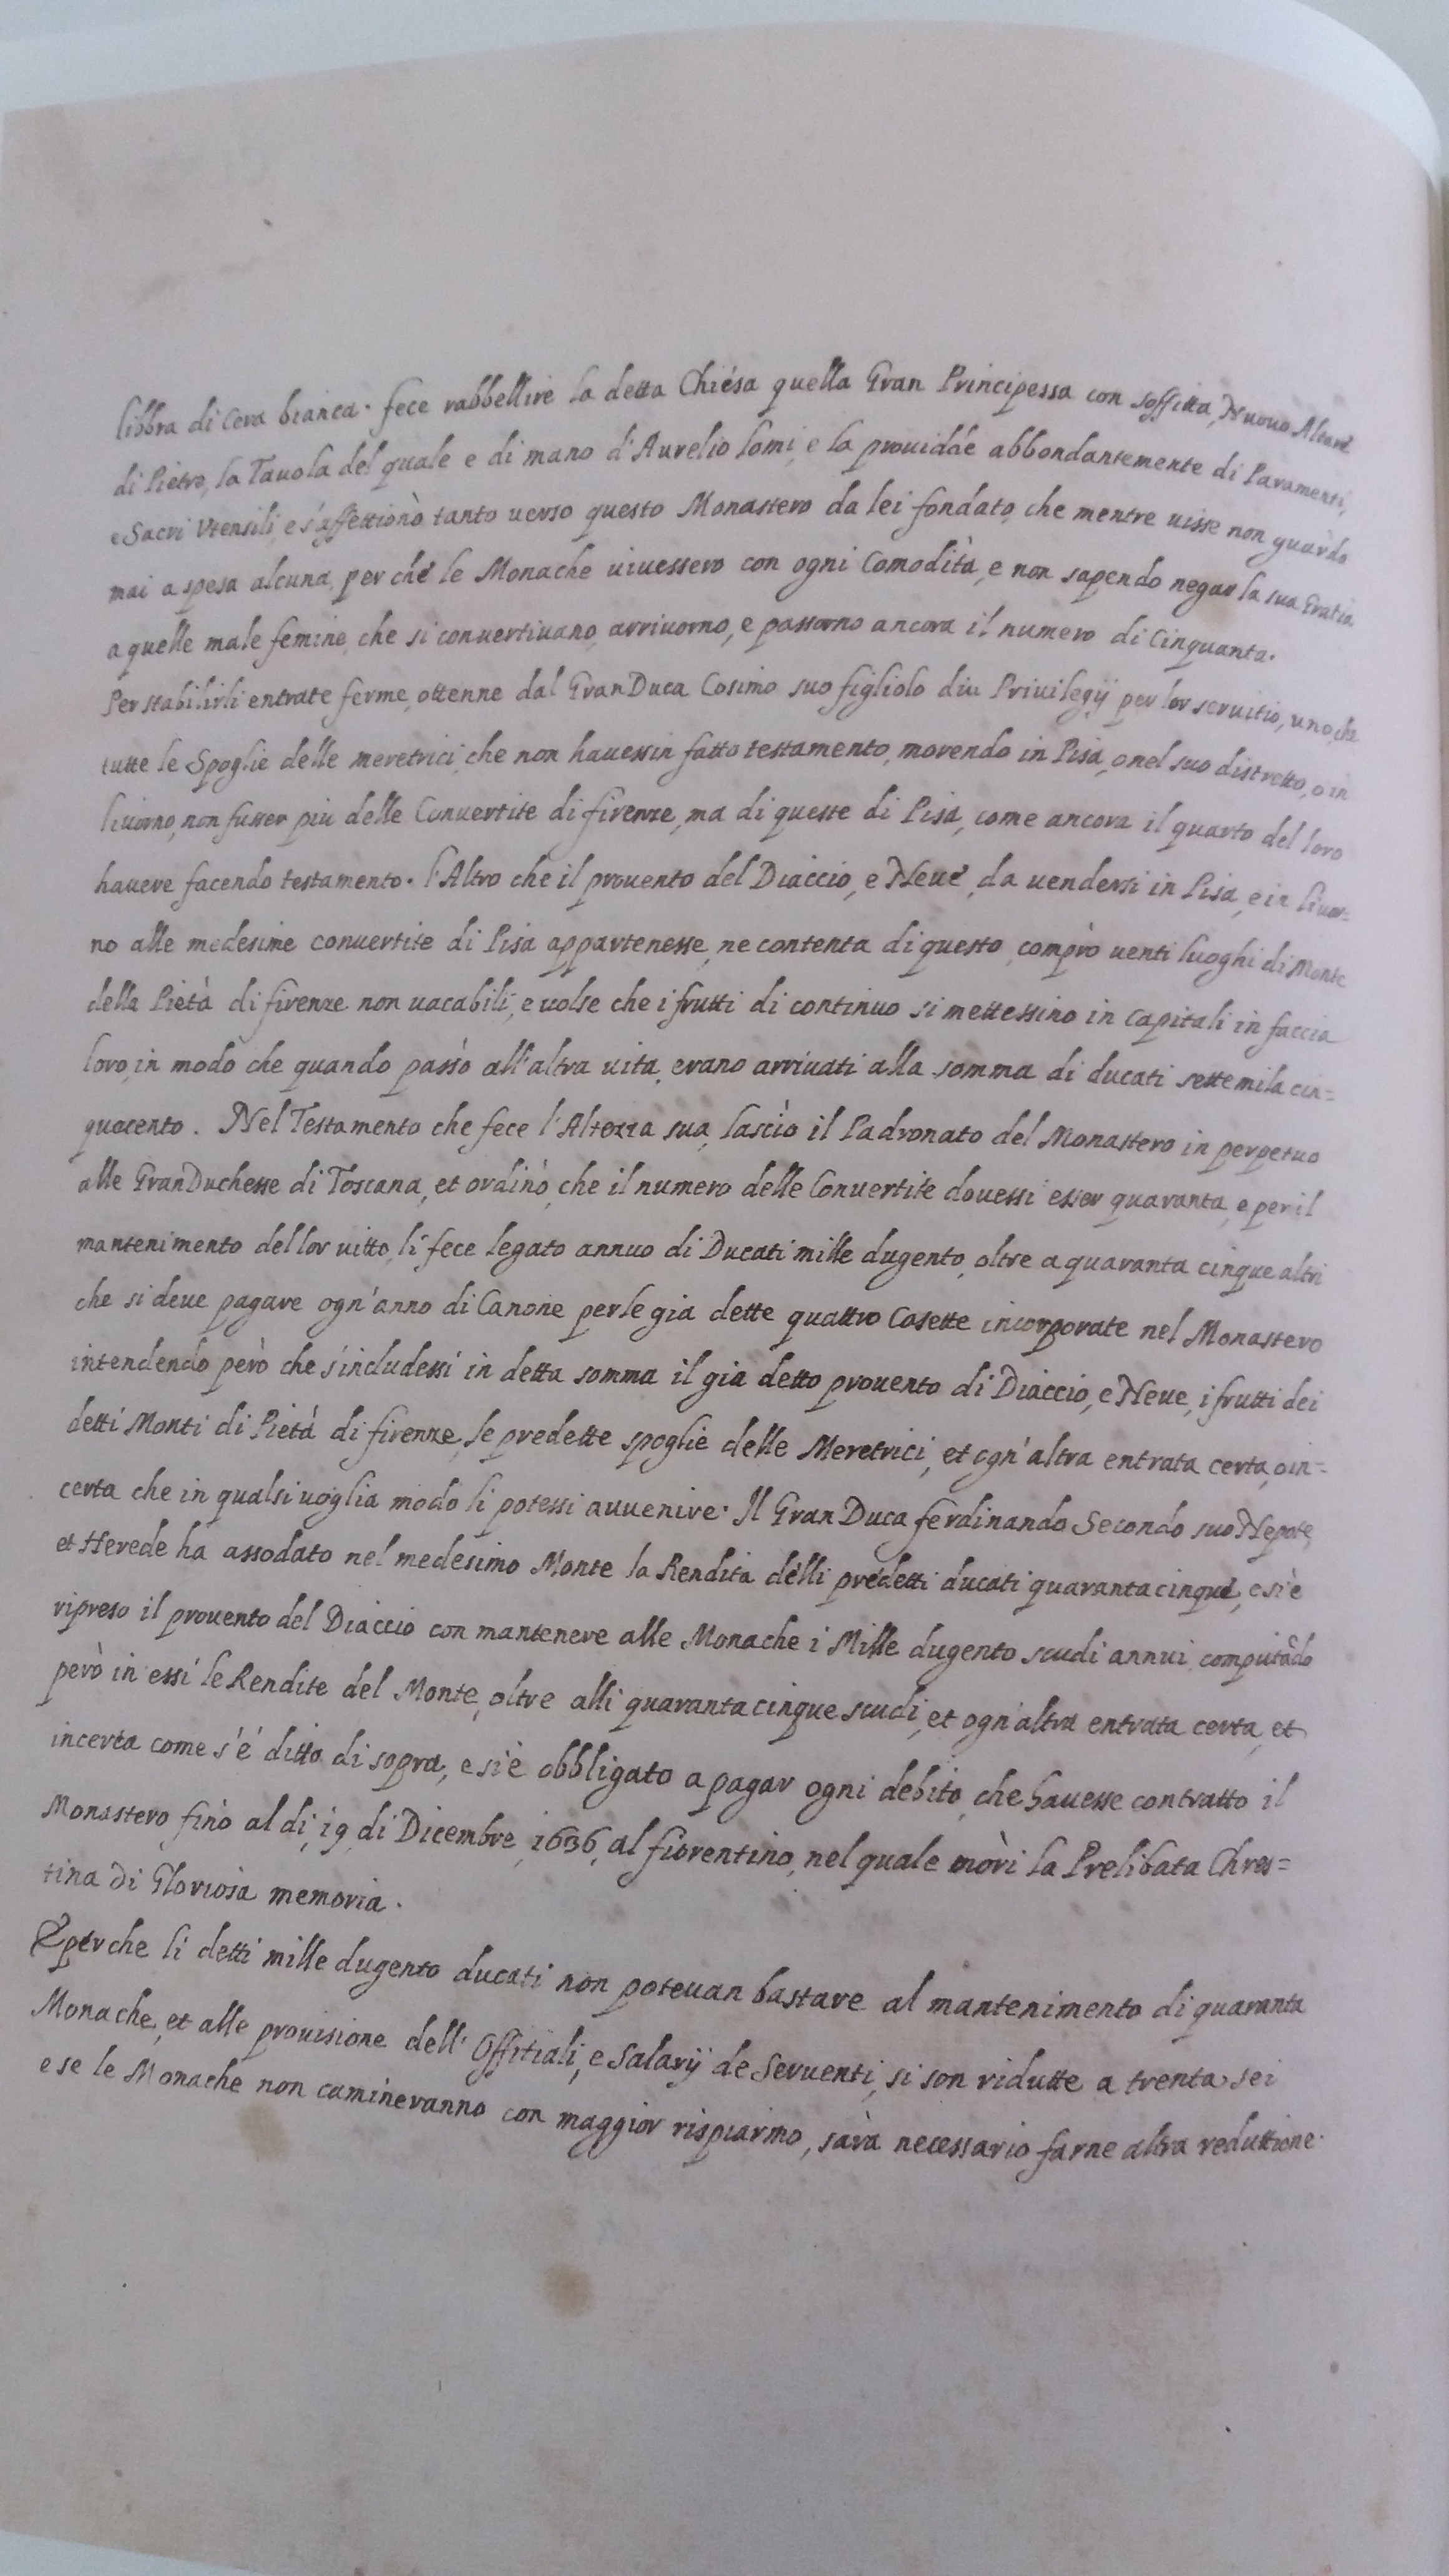 libbra di Cera bianca. fece rabbellire la detta Chiesa quella Gran Principessa con soffitta, Nuovo Altare
di Pietre, la Tauola del quale e di mano d'Aurelio lomi, e la prouidde abbondantemente di Paramenti,
e Sacri Vtensili, e s'affettionò tanto uerso questo Monastero da lei fondato, che mentre uisse non guardo
mai a spesa alcuna, perche le Monache uiuessero con ogni Comodità, e non sapendo negar la sua Gratia
a quelle male femine, che si conuertiuano, arriuorno, e passorno ancora il numero di Cinquanta.
Per stabilirli entrate ferme, ottenne dal GranDuca Cosimo suo figliolo diu Priuilegij per lor seruitio, uno, che
tutte le Spoglie delle meretrici, che non hauessin fatto testamento, morendo in Pisa, o nel suo distretto, o in
liuorno, non fusser piu delle Conuertite di firenze, ma di queste di Pisa, come ancora il quarto del loro
hauere facendo testamento. l'Altro che il prouento del Diaccio, e Neue, da uendersi in Pisa, e in liuor=
no alle medesime conuertite di Pisa appartenesse, ne contenta di questo, comprò uenti luoghi di Monte
della Pietà di firenze non uacabili, e uolse che i frutti di continuo si mettessino in capitali in faccia
loro, in modo che quando passò all'altra uita, erano arriuati alla somma di ducati settemila cin=
quocento. Nel Testamento che fece l'Altezza sua, lasciò il Padronato del Monastero in perpetuo
alle GranDuchesse di Toscana, et ordinò, che il numero delle Conuertite douessi esser quaranta, e per il
mantenimento del lor uitto, li fece legato annuo di Ducati mille dugento, oltre a quaranta cinque altri
che si deue pagare ogn'anno di Canone per le gia dette quattro Casette incorporate nel Monastero
intendendo però che s'includessi in detta somma il gia detto prouento di Diaccio, e Neue, i frutti dei
detti Monti di Pietà di firenze, le predette spoglie delle Meretrici, et ogn'altra entrata certa, o in=
certa che in qualsiuoglia modo li potessi auuenire. Il GranDuca ferdinando Secondo suo Nepote,
et Herede ha assodato nel medesimo Monte la Rendita delli predetti ducati quaranta cinque, e si è
ripreso il prouento del Diaccio con mantenere alle Monache i Mille dugento scudi annui, computãdo
però in essi le Rendite del Monte, oltre alli quaranta cinque scudi, et ogn'altra entrata certa, et
incerta come s'é ditto di sopra, e si è obbligato a pagar ogni debito, che hauesse contratto il
Monastero fino al di, 19, di Dicembre, 1636, al fiorentino, nel quale morì la Prelibata Chres=
tina di Gloriosa memoria.
E perche li detti mille dugento ducati non poteuan bastare al mantenimento di quaranta
Monache, et alle prouisione dell' Offitiali, e Salarij de Seruenti, si son ridutte a trenta sei
e se le Monache non camineranno con maggior risparmo, sarà necessario farne altra reduttione.